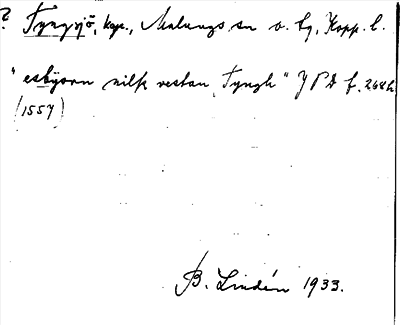 ? Tyngsjö, kap., Malungs sn o. hg, Kopp. l.
"esbjörn nilß vestan Tyngh" JPD f. 268
(1557)
B. Lindén 1933.